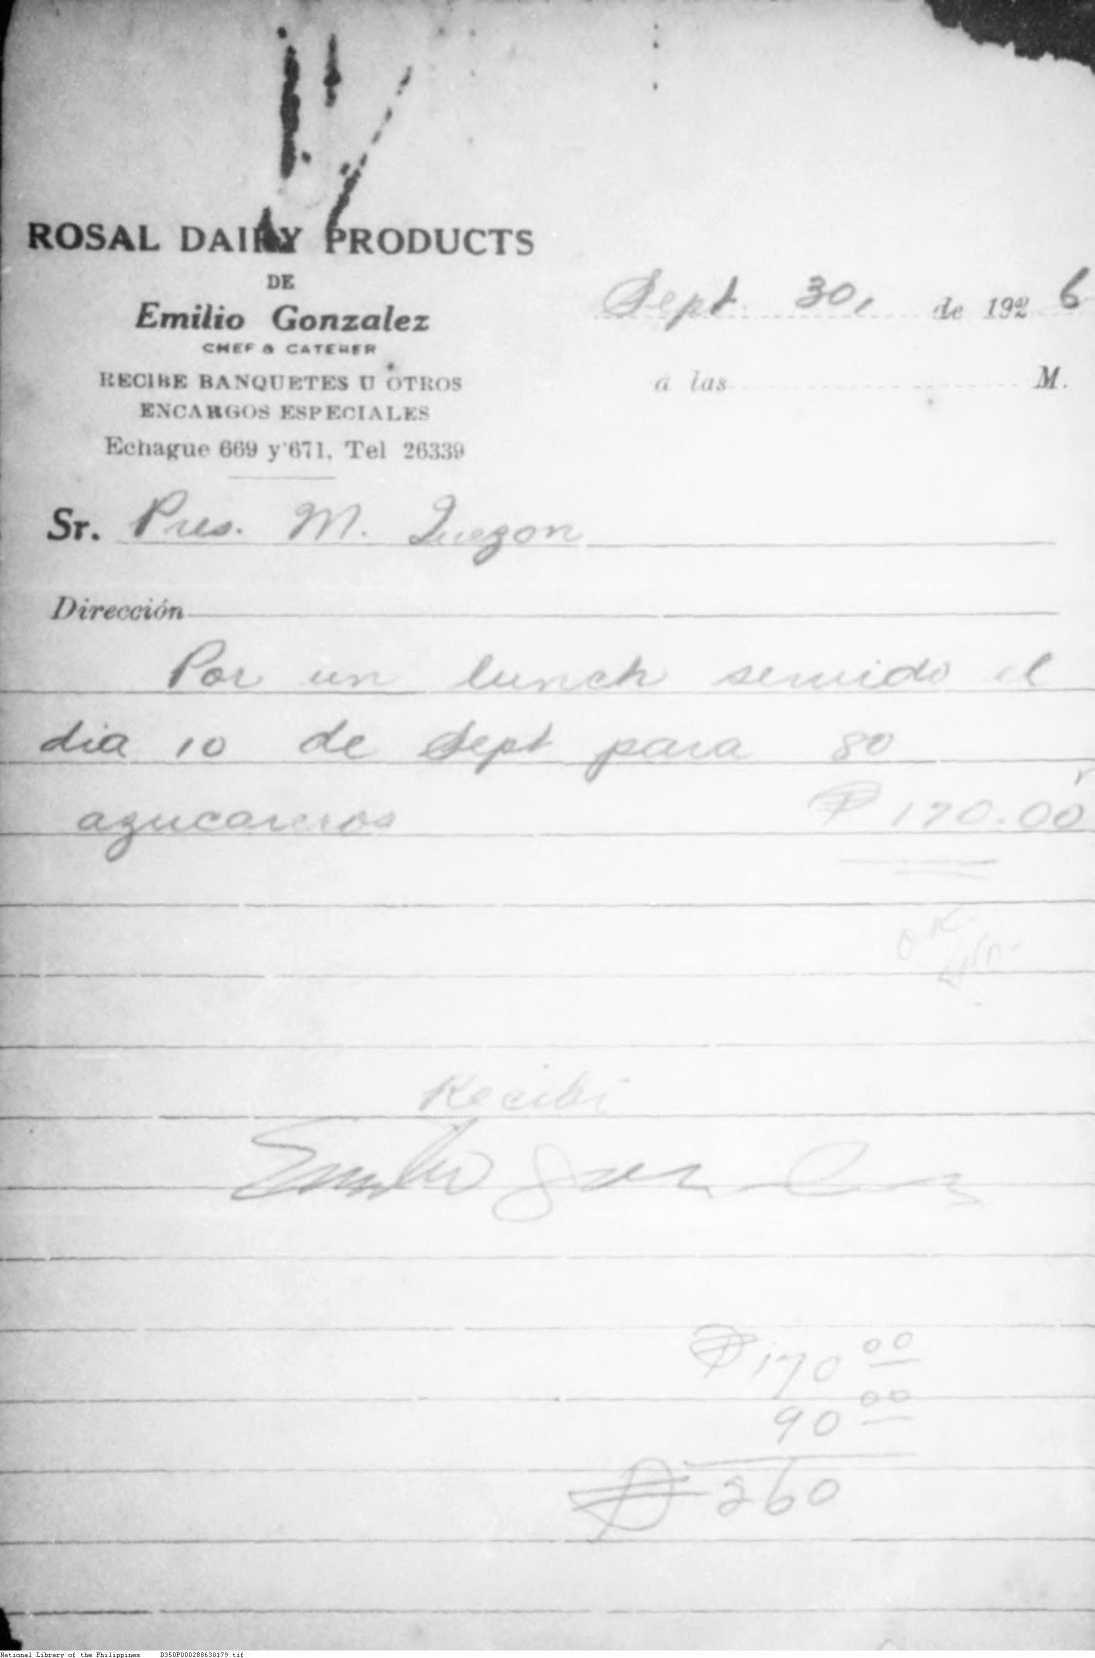 ROSAL DAIRY PRODUCTS
DE
Emilio Gonzalez
CHEF & CATERER
RECIBE BANQUETES U OTROS
ENCARGOS ESPECIALES
Echague 669 y 671. Tel 26339
Sept. 30, de 1926
á las M.
Sr. Pres. M. Quezon
Dirección
Por un lunch servido el
dia 10 de Sept para 80
azucareros ₱ 170.00
OK
Recibi
Emilio Gonzalez
₱ 170 00
90 00
₱ 260
National Library of the Philippines D350P000288630179.tif